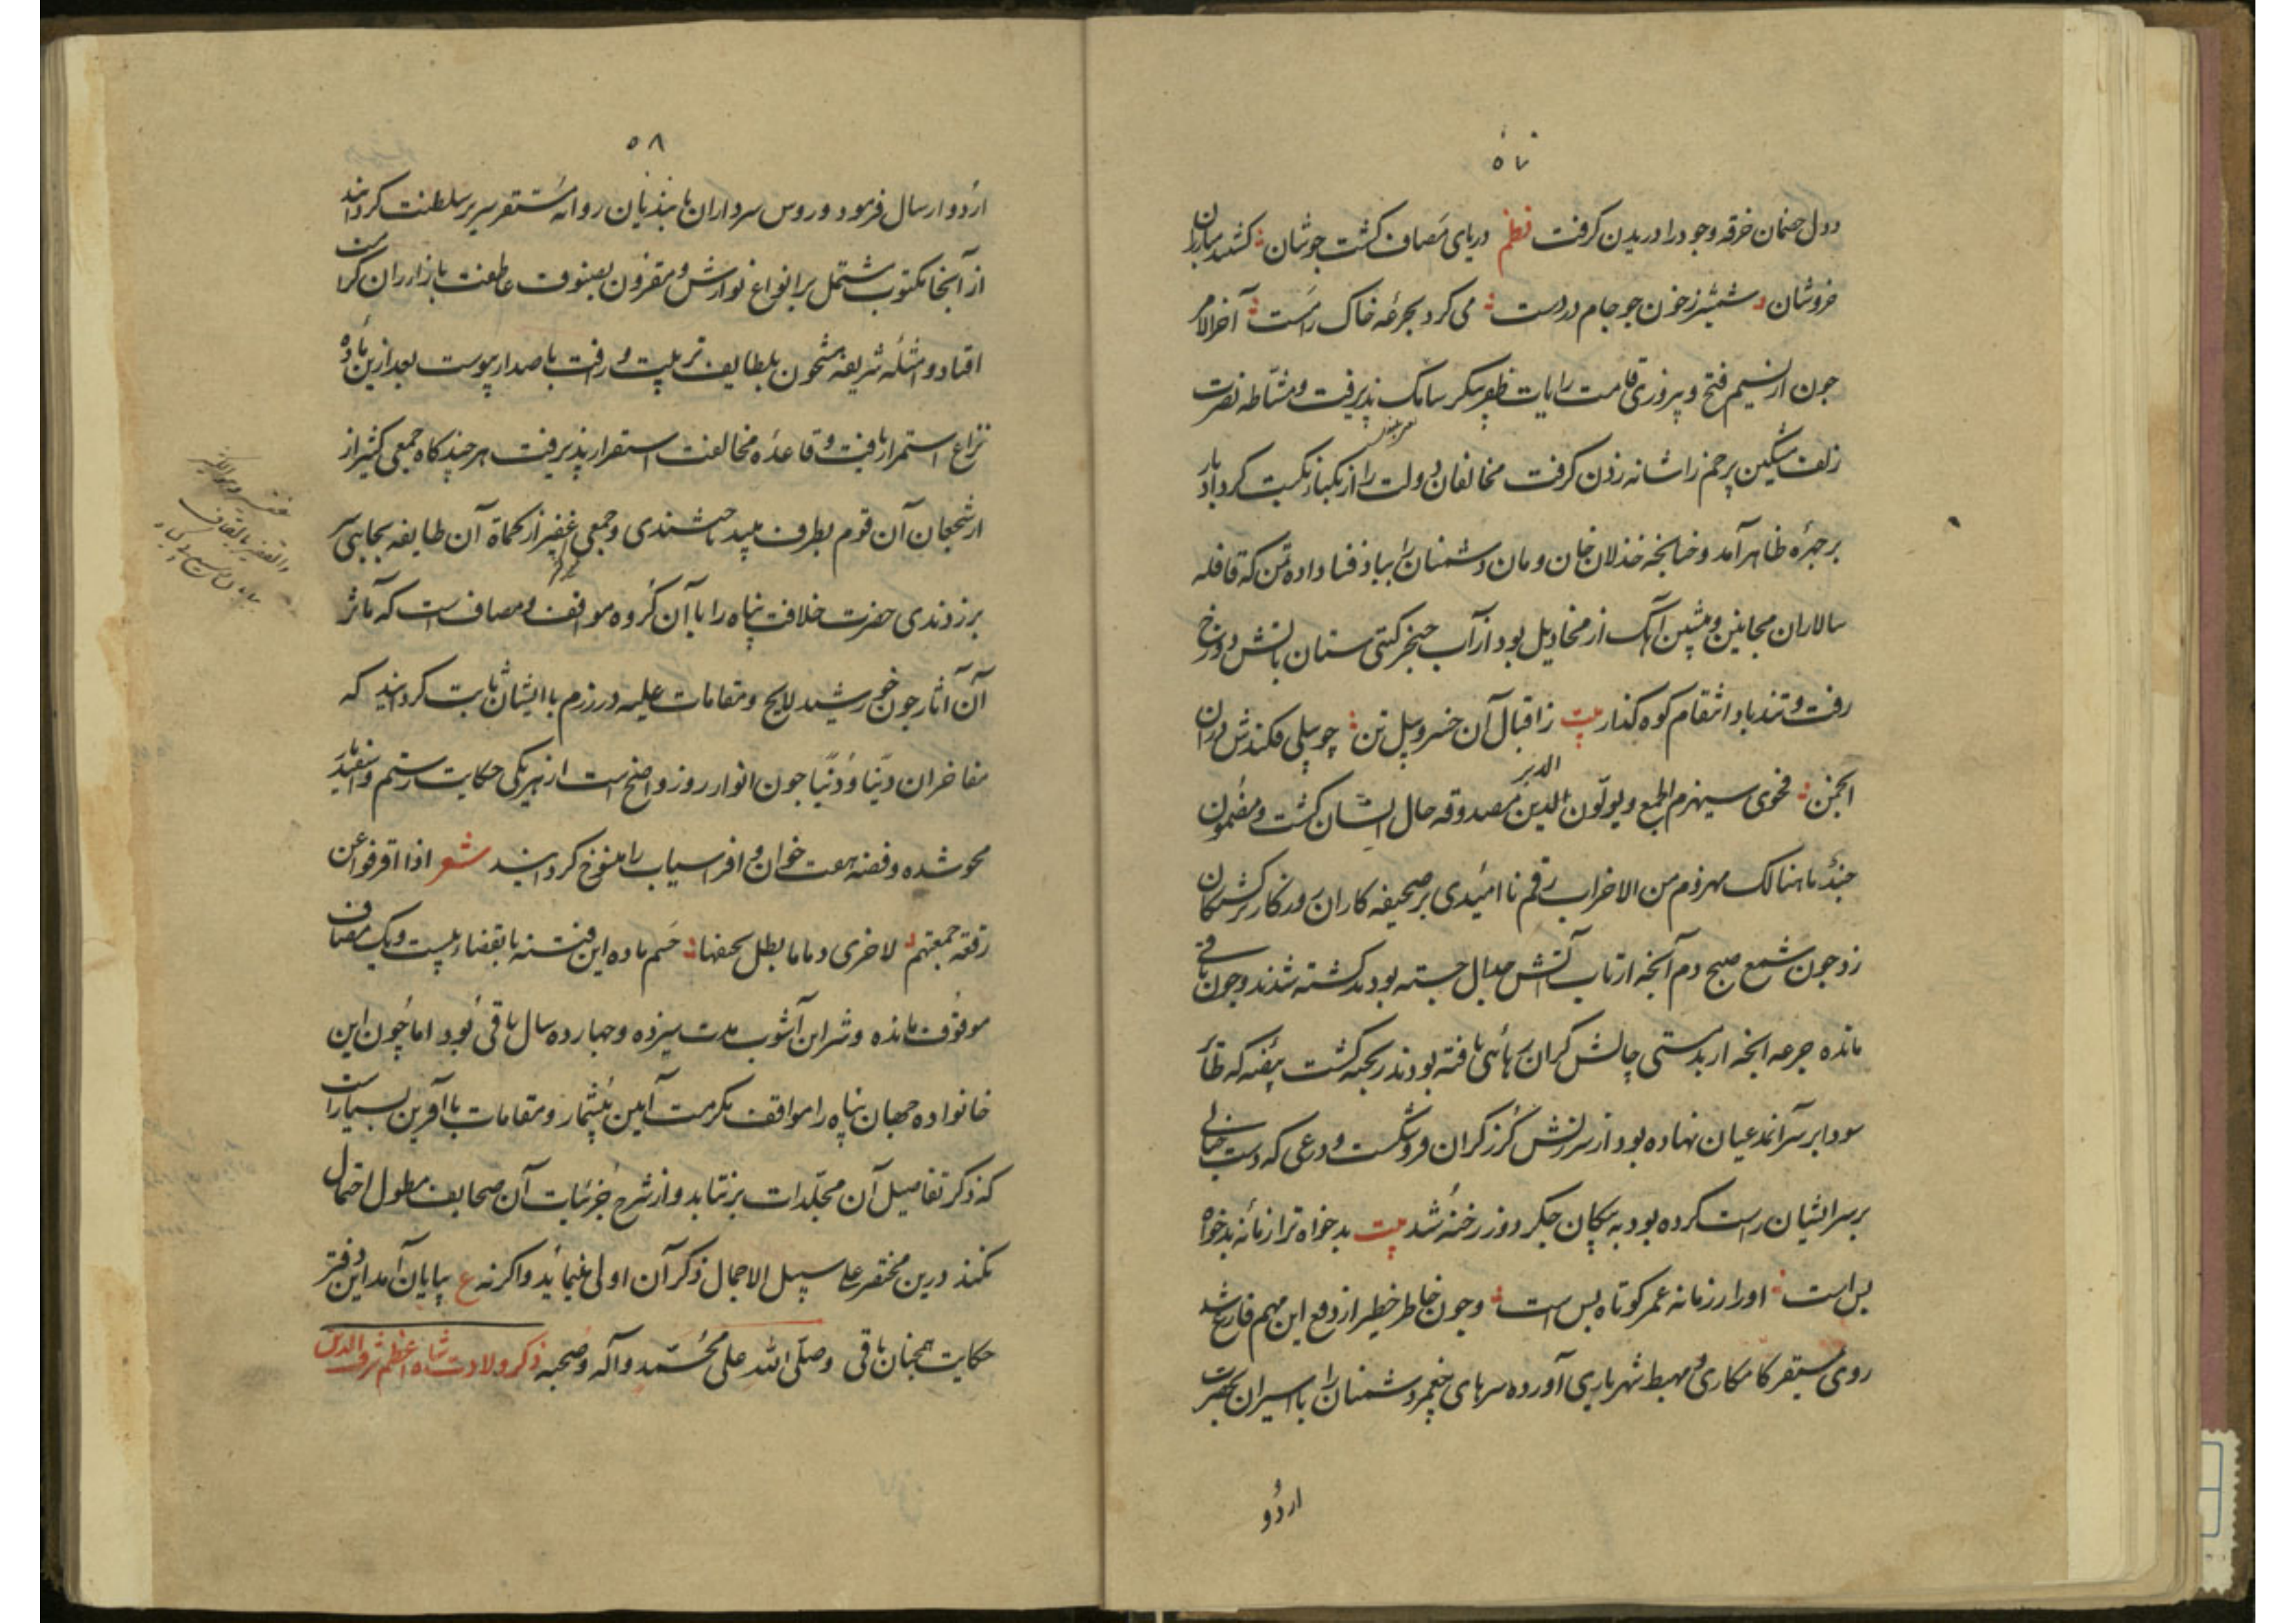 ۵۷
و دل خصمان خرقه وجود را دریدن کرفت نظم دریای مصاف کشت جوشان کشتند مبارزان
خروشان شمشیر ز خون جو جام در دست می کرد بجرعه خاک را مست آخر الامر
جون از نسیم فتح و پیروزی قامت رایات ظفر پیکر پذیرفت و مشاطه نصرت
زلف مشکین پرجم را شانه زدن کرفت مخالفان دولت را از نکبت کرد ادبار
بر جهره ظاهر آمد و خذلان خان و مان دشمنان را بباد فنا داده تن که قافله
سالاران مجانین و پیش آهنک از مخاذیل بود از آب خنجر کیتی ستان بآتش دوزخ
رفت و تند باد انتقام کوه کذار بیت ز اقبال آن خسرو پیل تن چو پیلی فکندش در ان
انجمن فحوی سیهزم الجمع و یولّون الدبر مصدوقه حال ایشان کشت و مضمون
جند ما هنالک مهزوم من الاحزاب رقم نا امیدی بر صحیفه کاران روزکار برکشتکان
زد جون شمع صبح دم آنجه از تاب آتش جدال جسته بودند کشته شدند و جون باقی
مانده جرعه انجه از بدمستی چالش کران رهائی یافته بودند ریخته کشت بیضه که
سودا بر سر آنمدعیان نهاده بود از سرزنش کرز کران فرو شکست و درعی که دست
بر سر ایشان راست کرده بود به پیکان جکر دوز رخنه شد بیت بدخواه ترا زمانه بدخواه
بس است او را ز زمانه عمر کوتاه بس است و جون خاطر خطیر از دفع این مهم فارغ شد
روی بمستقر کامکاری و مهبط شهریاری آورده سرهای دشمنان را با اسیران بحضرت
اردو
۵۸
اردو ارسال فرمود و روس سرداران با بندیان روانه مستقر سریر سلطنت کردانید
از آنجا مکتوب مشتمل بر انواع نوازش و مقرون بصنوف عاطفت
افتاد و امثله شریفه مشحون بلطایف تربیت و رافت باصدار پیوست بعد ازین ماده
نزاع استمرار یافت و قاعده مخالفت استقرار پذیرفت هر چند کاه جمعی کثیر از
شجعان آن قوم بطرف میبد تاختندی و جمعی غفیر از کماة آن طایفه بجانبی سر
برزدندی حضرت خلافت پناه را با آن کروه مواقف و مصاف است که مآثر
آن آثار جون خورشید لایح و مقامات علیه در رزم با ایشان ثابت کردانید که
مفاخر ان جون انوار روز واضح است از هر یکی حکایت رستم و اسفندیار
محو شده و قصه هفت خوان و افراسیاب را منسوخ کردانید شعر اذا افترقوا عن
وقعة جمعتهم لاخری دما ما یطل حسم ماده این فتنه بانقضاء بیست و یک مصاف
موقوف مانده و شر این آشوب مدت سیزده و جهارده سال باقی بود اما چون این
خانواده جهان پناه را مواقف مکرمت آیین بیشمار و مقامات با آفرین بسیار است
که ذکر تفاصیل آن مجلدات برنتابد و از شرح جزئیات آن صحایف مطول احتمال
نکند درین مختصر علی سبیل الاجمال ذکر آن اولی مینماید و اکرنه ع بپایان آمد این دفتر
حکایت همجنان باقی و صلّی الله علی محمّد و آله و صحبه ذکر ولادت شاه اعظم شرف الدین